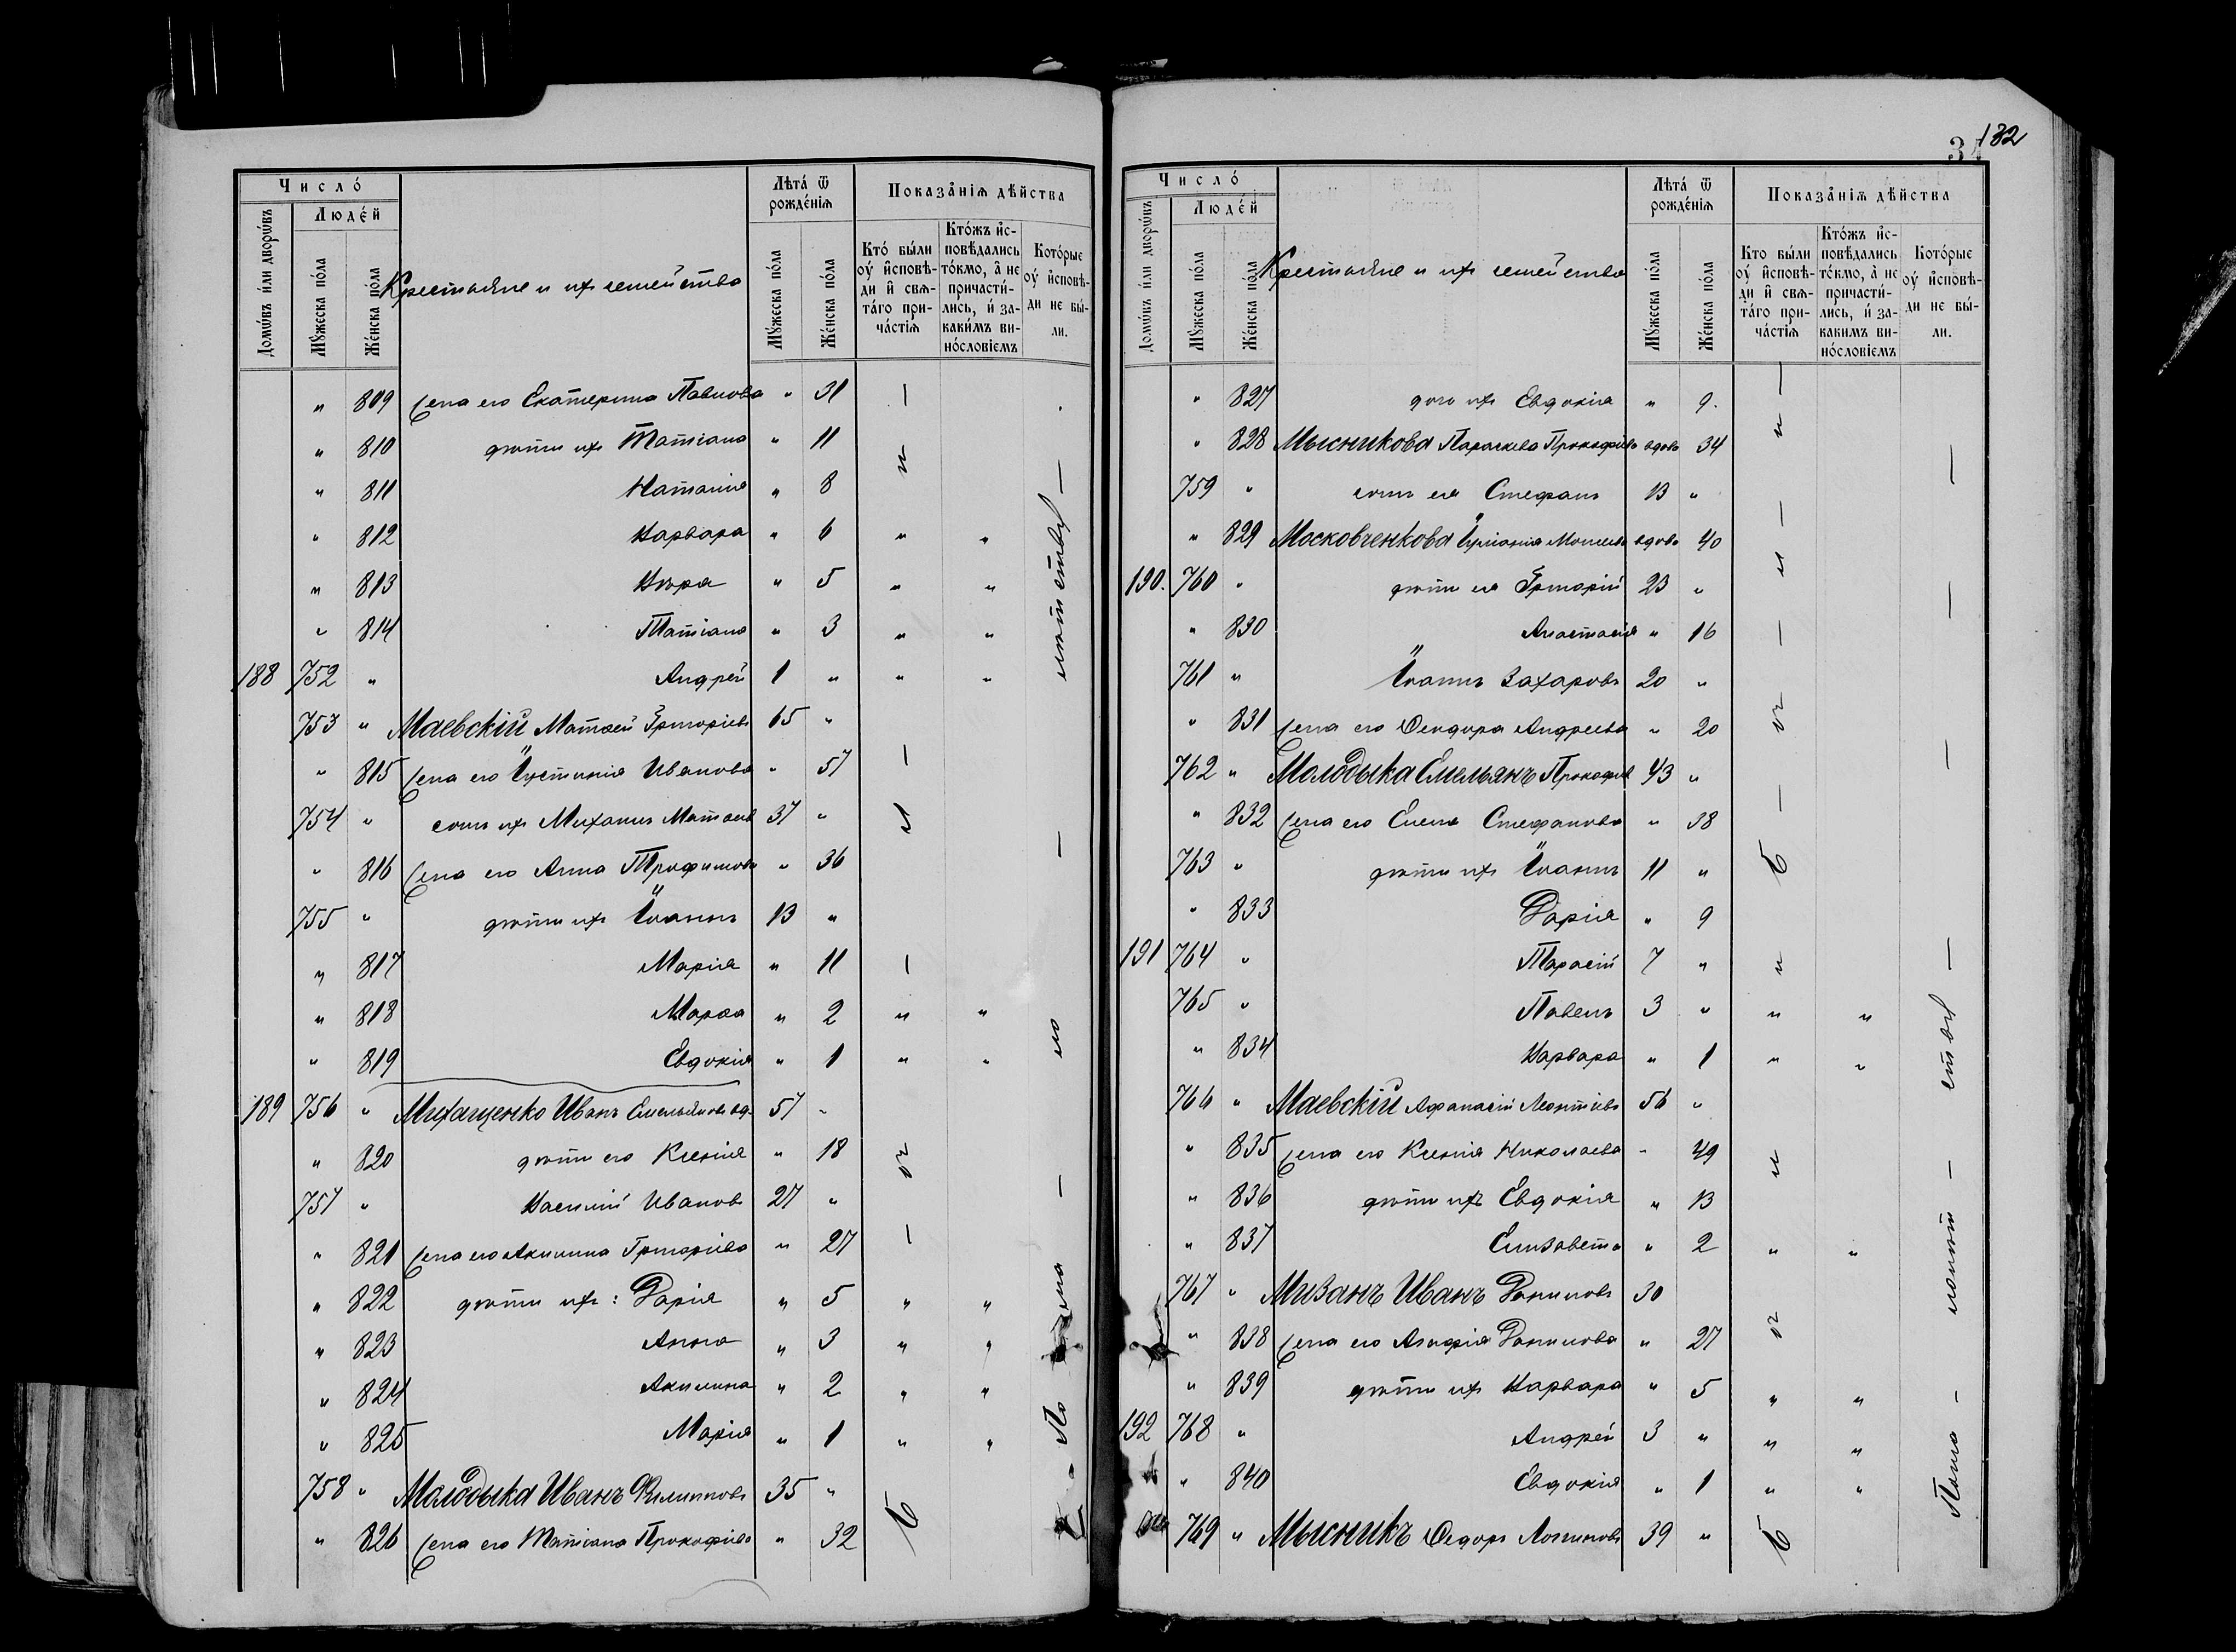 Число́
Людє́й
Домѡ́въ и҆ли дворѡ́въ
Мꙋ́жєска по́ла
Жє́нска по́ла
Крестьяне и ихъ семейства
Лѣта́ ѿ рождє́нїѧ
Мꙋ́жєска по́ла
Жє́нска по́ла
Показа̑нїѧ дѣ́йства
Кто́ бы́ли оу҆ и҆сповѣ-
ди и҆ свѧ-
та́го при-
ча́стїѧ
Кто́жъ и҆с-
повѣдались
то́кмо, а҆ не
причасти́-
лись, и҆ за-
каки́мъ ви-
но́словїємъ
Кото́рыє
оу҆ и҆сповѣ-
ди не бы́-
ли.
" 809 жена его Екатерина Павлова " 31
" 810 дѣти ихъ Татіана " 11
" 811 Наталія " 8
" 812 Варвара " 6 " "
" 813 Вѣра " 5 " "
" 814 Татіана " 3 " "
188 752 " Андрей 1 " " "
753 " Маевскій Матѳей Григоріевъ 65 "
" 815 жена его Іустинія Иванова " 57
754 " сынъ ихъ Михаилъ Матѳеевъ 37 "
" 816 жена его Анна Трофимова " 36
755 " дѣти ихъ Іоаннъ 13 "
" 817 Марія " 11
" 818 Марѳа " 2 " "
" 819 Евдокія " 1 " "
189 756 " Михащенко Иванъ Емельяновъ вд. 57 "
" 820 дѣти его Ксенія " 18
757 " Василій Ивановъ 27 "
" 821 жена его Акилина Григоріева " 27
" 822 дѣти ихъ: Дарія " 5 " "
" 823 Анна " 3 " "
" 824 Акилина " 2 " "
" 825 Марія " 1 " "
758 " Молодыка Иванъ Филипповъ 35 "
" 826 жена его Татіана Прокофіева " 32
По мало лѣтству
132
34
Число́
Людє́й
Домѡ́въ и҆ли дворѡ́въ
Мꙋ́жєска по́ла
Жє́нска по́ла
Крестьяне и ихъ семейства
Лѣта́ ѿ рождє́нїѧ
Мꙋ́жєска по́ла
Жє́нска по́ла
Показа̑нїѧ дѣ́йства
Кто бы́ли
оу҆ и҆сповѣ-
ди и҆ свѧ-
та́го при-
ча́стїѧ
Кто́жъ и҆с-
повѣдались
то́кмо, а҆ не
причасти́-
лись, и҆ за-
каки́мъ ви-
но́словїємъ
Кото́рыє
оу҆ и҆сповѣ-
ди не бы́-
ли.
" 827 дочь ихъ Евдокія " 9.
" 828 Мысникова Параскева Прокофіева вдова 34
759 " сынъ ея Стефанъ 13 "
" 829 Московченкова Іуліанія Моисеева вдова 40
190. 760 " дѣти ея Григорій 23 "
" 830 Анастасія " 16
761 " Іоаннъ Захаровъ 20 "
" 831 жена его Ѳеодора Андреева " 20
762 " Молодыка Емельянъ Прокофіев 43 "
" 832 жена его Елена Стефанова " 38
763 " дѣти ихъ Іоаннъ 11 "
" 833 Дарія " 9
191 764 " Тарасій 7 "
765 " Павелъ 3 " " "
" 834 Варвара " 1 " "
766 " Маевскій Афанасій Леонтіевъ 56 "
" 835 жена его Ксенія Николаева " 49
" 836 дѣти ихъ Евдокія " 13
" 837 Елизавета " 2 " "
767 " Мизанъ Иванъ Даниловъ 30
" 838 жена его Агафія Данилова " 27
" 839 дѣти ихъ Варвара " 5 " "
192 768 " Андрей 3 " " "
" 840 Евдокія " 1 " "
769 " Мысникъ Ѳедоръ Логиновъ 39 "